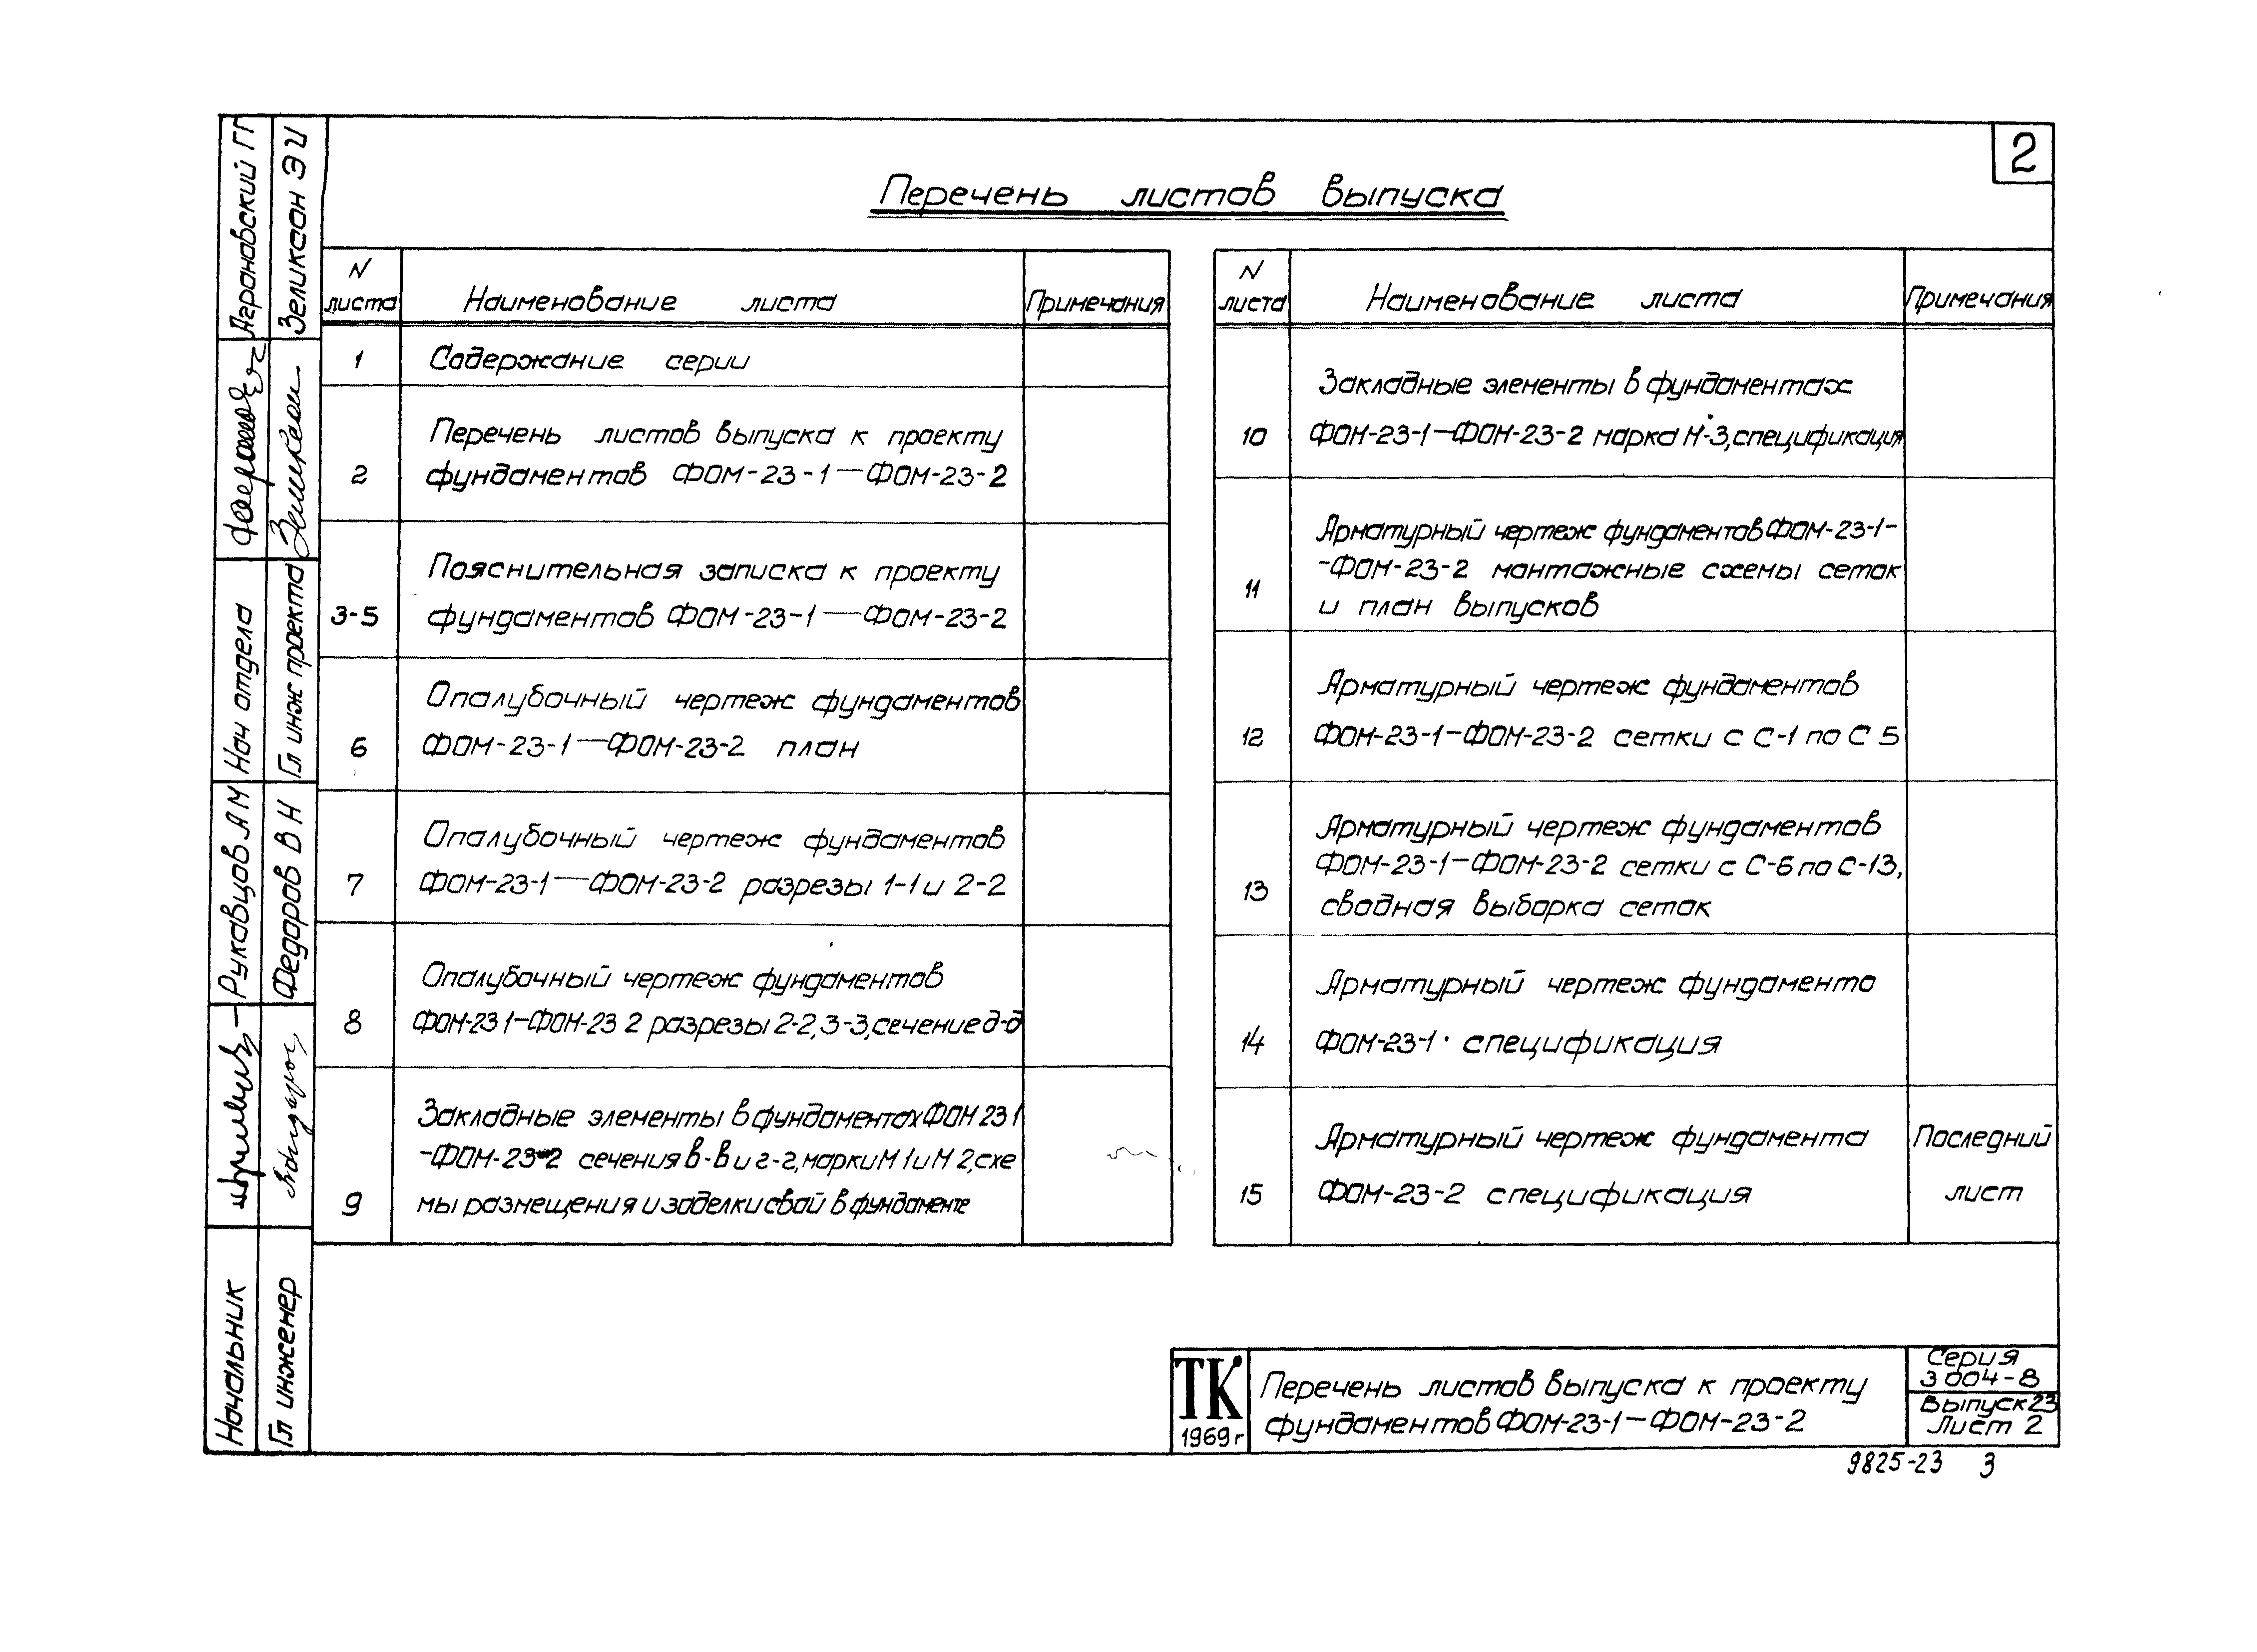 2
Перечень листов выпуска
N листа
Наименование листа
Примечания
1
Содержание серии
2
Перечень листов выпуска к проекту
фундаментов ФОМ-23-1—ФОМ-23-2
3-5
Пояснительная записка к проекту
фундаментов ФОМ-23-1—ФОМ-23-2
6
Опалубочный чертеж фундаментов
ФОМ-23-1—ФОМ-23-2 план
7
Опалубочный чертеж фундаментов
ФОМ-23-1—ФОМ-23-2 разрезы 1-1 и 2-2
8
Опалубочный чертеж фундаментов
ФОМ-23 1—ФОМ-23 2 разрезы 2-2, 3-3, сечение д-д
9
Закладные элементы в фундаментах ФОМ 23 1
-ФОМ-23-2 сечения в-в и г-г, марки М 1 и М 2, схе
мы размещения и заделки свай в фундаменте
N листа
Наименование листа
Примечания
10
Закладные элементы в фундаментах
ФОМ-23-1—ФОМ-23-2 марка М-3, спецификация
11
Арматурный чертеж фундаментов ФОМ-23-1-
-ФОМ-23-2 монтажные схемы сеток
и план выпусков
12
Арматурный чертеж фундаментов
ФОМ-23-1-ФОМ-23-2 сетки с С-1 по С 5
13
Арматурный чертеж фундаментов
ФОМ-23-1-ФОМ-23-2 сетки с С-6 по С-13,
сводная выборка сеток
14
Арматурный чертеж фундамента
ФОМ-23-1· спецификация
15
Арматурный чертеж фундамента
ФОМ-23-2 спецификация
Последний
лист
ТК
1969 г
Перечень листов выпуска к проекту
фундаментов ФОМ-23-1—ФОМ-23-2
Серия
3 004-8
Выпуск 23
Лист 2
9825-23 3
Начальник
Рукавцов А М
Нач отдела
Аграновский Г Г
Гл инженер
Федоров В Н
Гл инж проекта
Зеликсон Э И